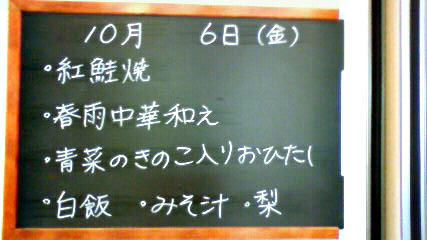 10月 6日(金)
・紅鮭焼
・春雨中華和え
・青菜のきのこ入りおひたし
・白飯 ・みそ汁 ・梨